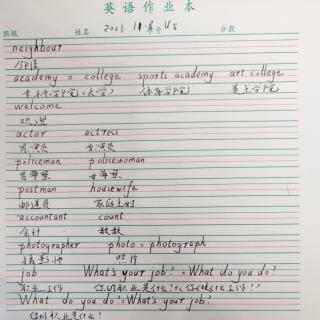 英语作业本
班级 姓名 2021 分数
neighbour
邻居
academy = college sports academy art college
专科学院(大学) 体育学院 美术学院
welcome
欢迎
actor actress
男演员 女演员
policeman policewoman
男警察 女警察
postman housewife
邮递员 家庭主妇
accountant count
会计 数数
photographer photo = photograph
摄影师 照片
job What's your job? = What do you do?
职业,工作 你的职业是什么?= 你做什么工作?
What do you do? = What's your job?
你的职业是什么?